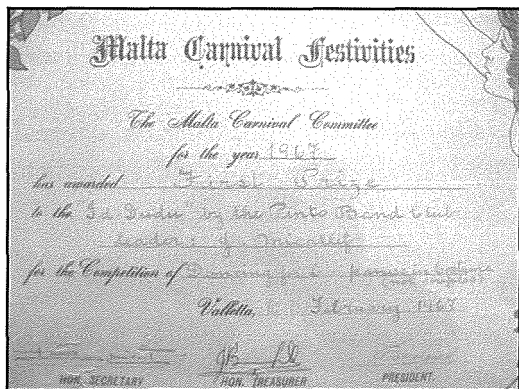 Malta Carnival Festivities
The Malta Carnival Committee
for the year 1967
has awarded First Prize
to the "Id-Dudu" by the Pinto Band Club
Leader: J. Micallef
for the Competition of
Valletta, February 1967
HON. SECRETARY HON. TREASURER PRESIDENT.